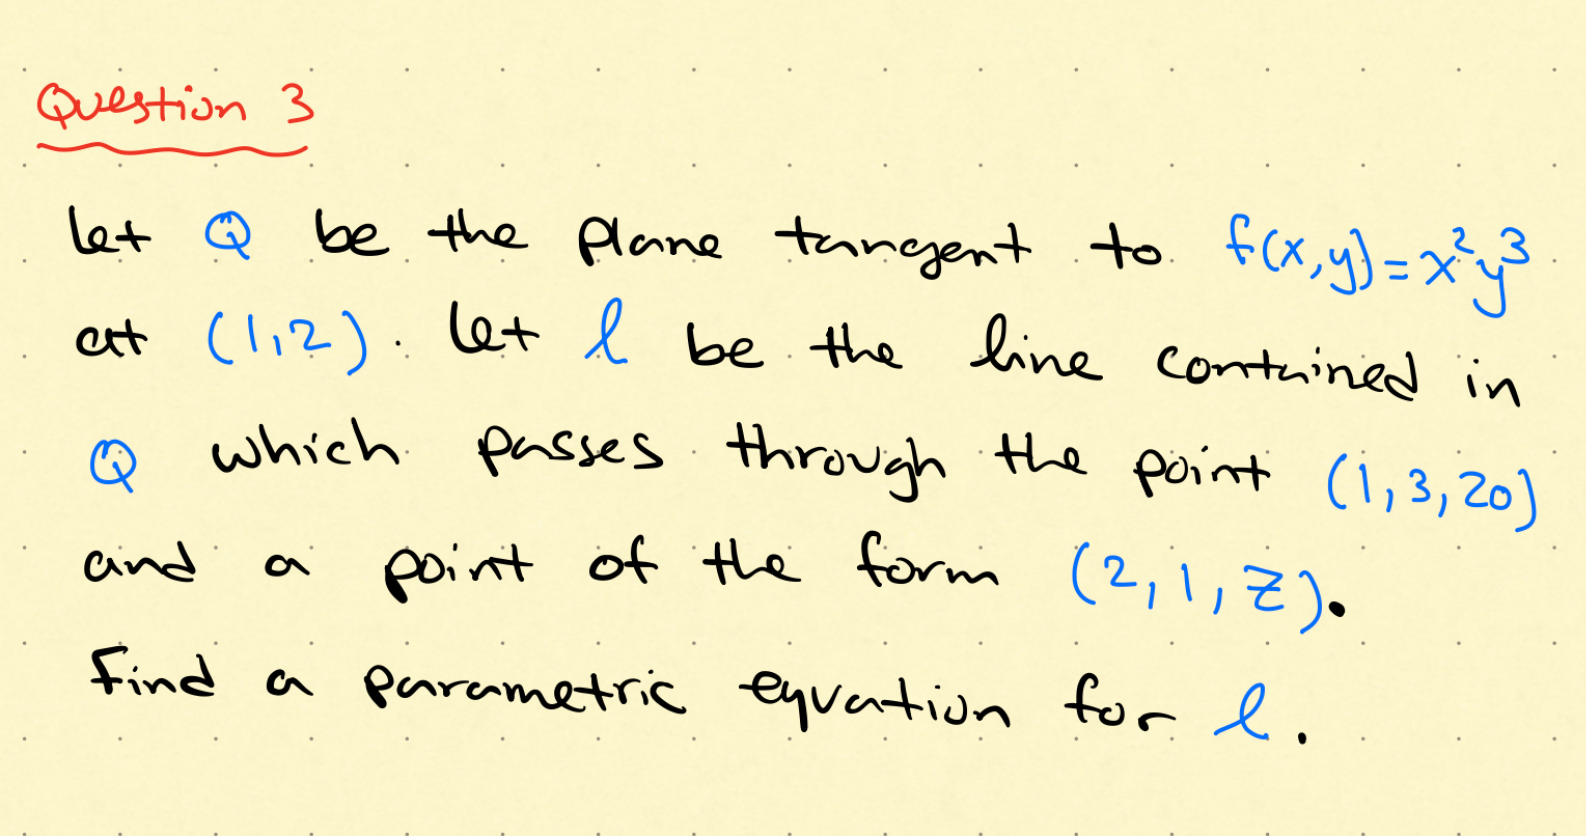 Question 3
Let Q be the plane tangent to f(x,y)=x²y³
at (1,2). Let l be the line contained in
Q which passes through the point (1,3,20)
and a point of the form (2,1,z).
Find a parametric equation for l.